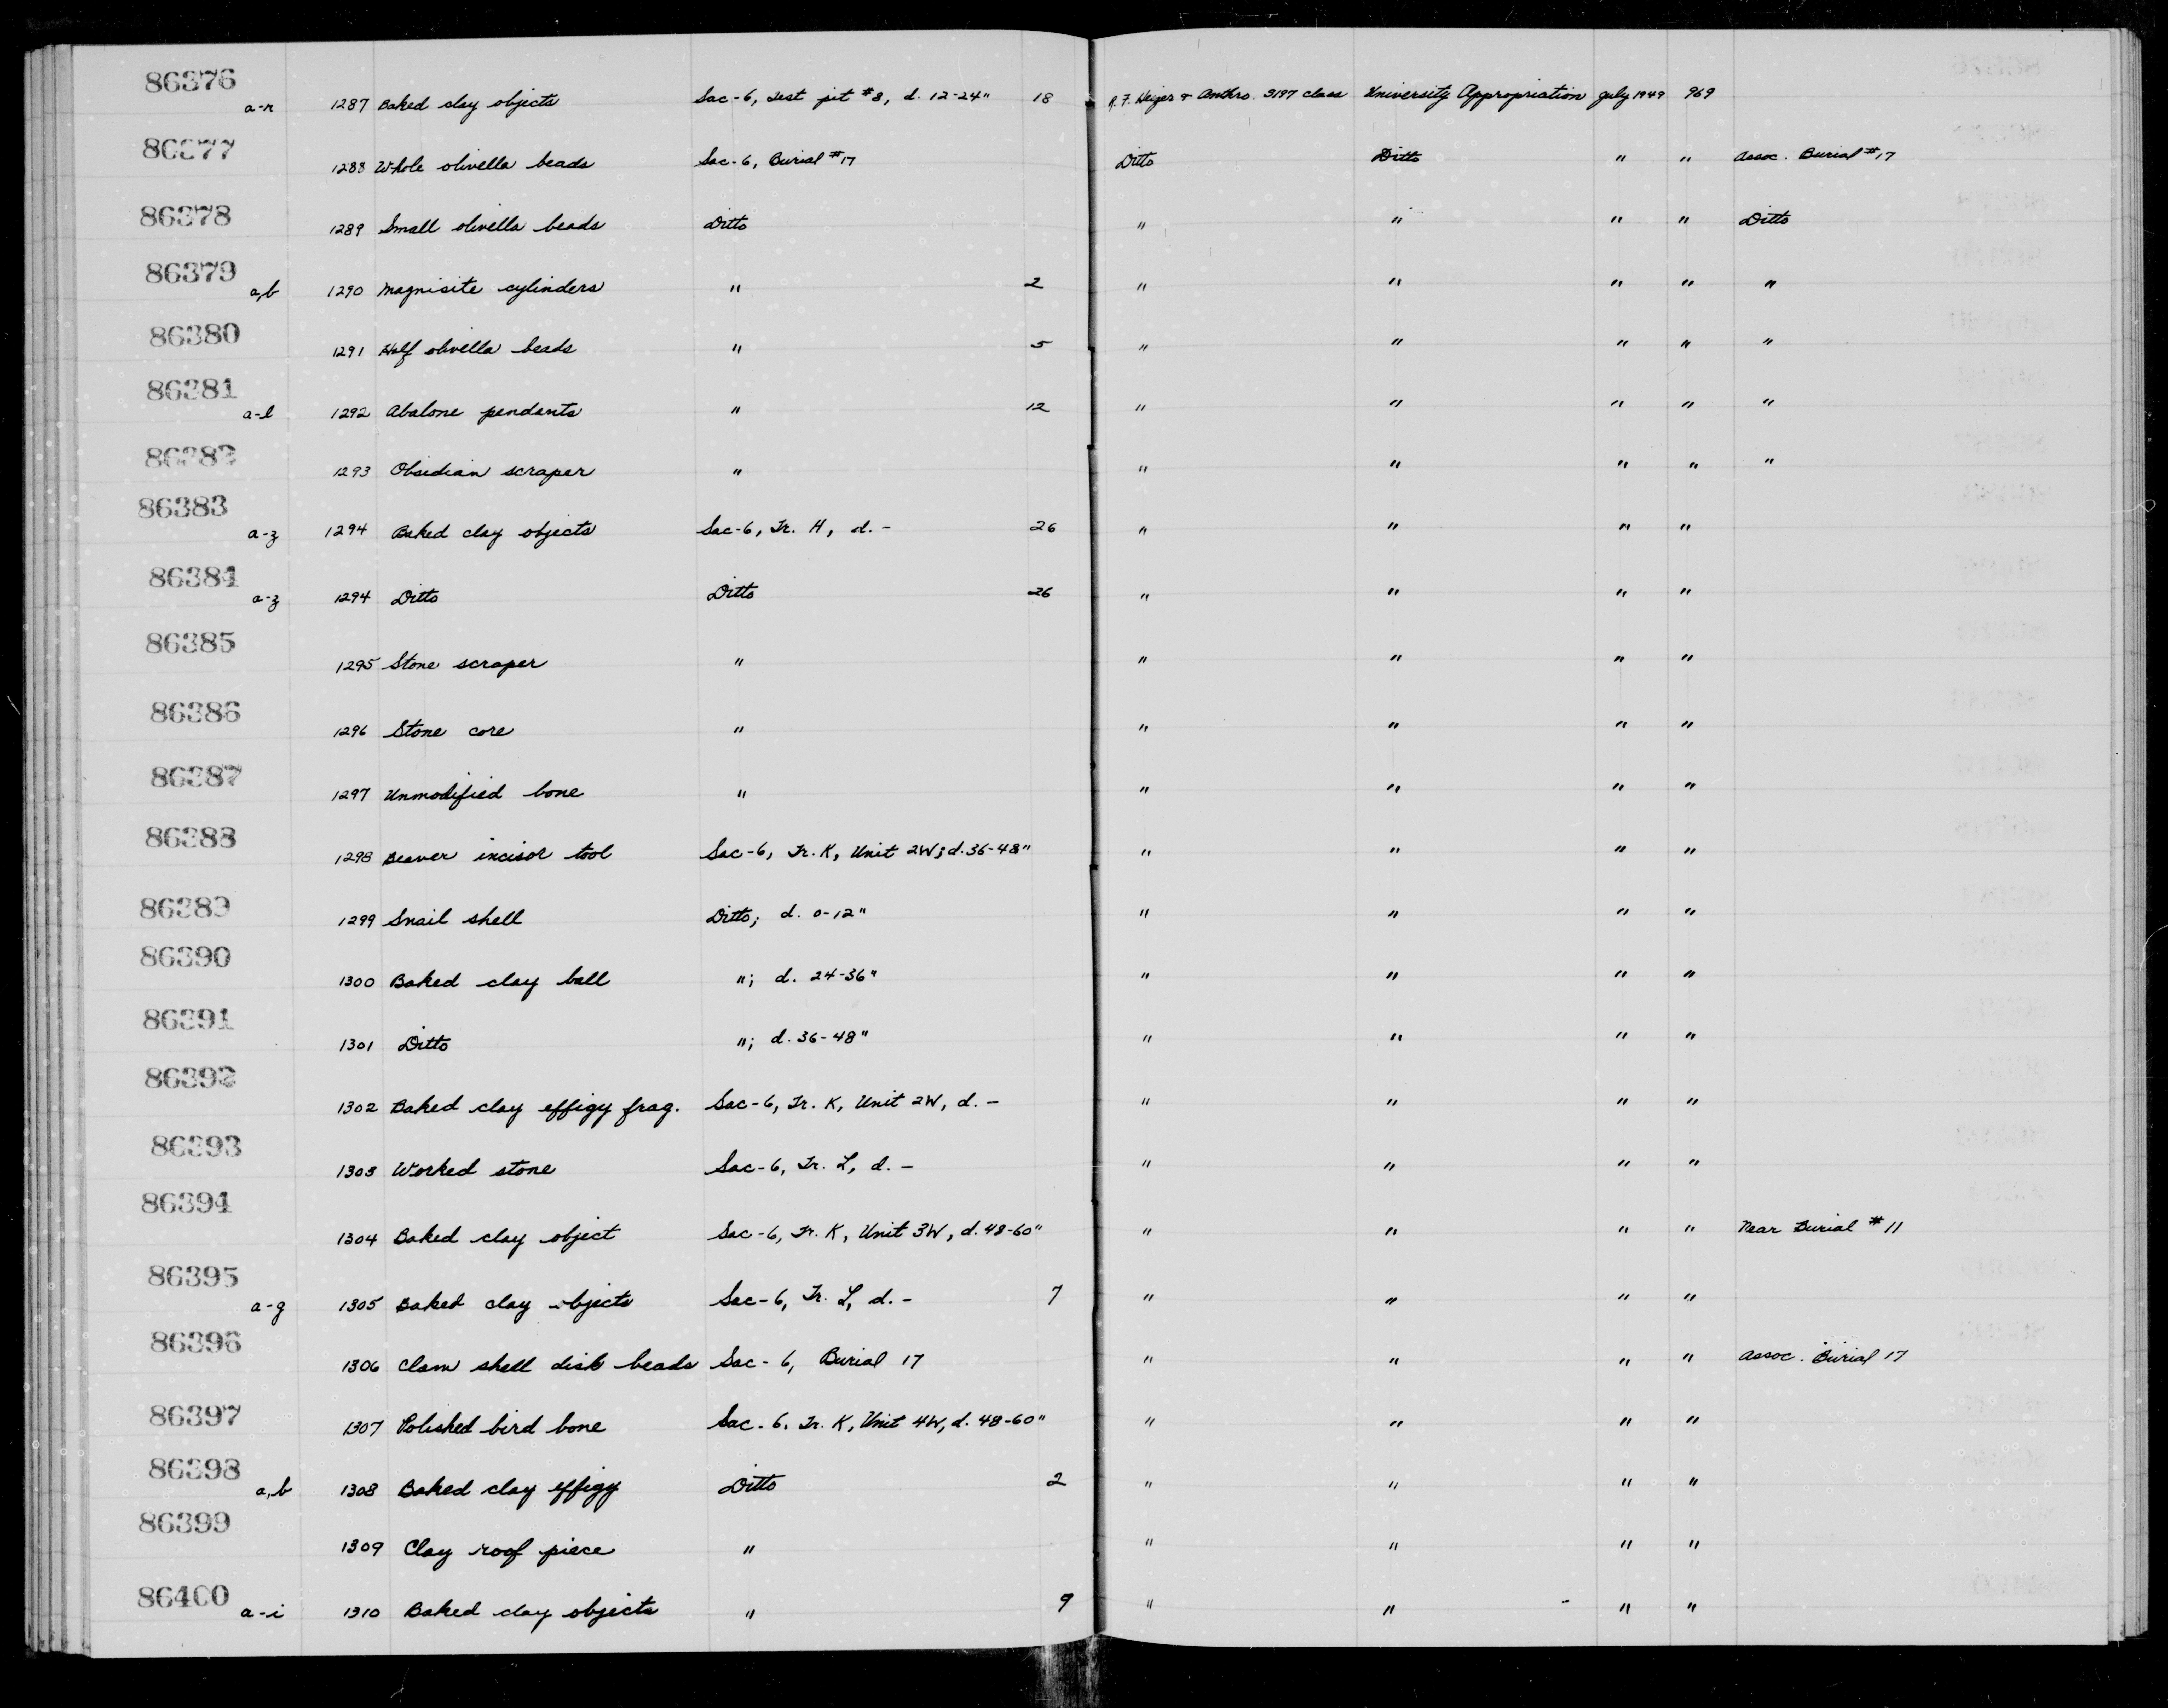 86376 a-r 1287 Baked clay objects Sac-6, Test pit #8, d. 12-24" 18 R. F. Heizer & Anthro. S197 class University Appropriation July 1949 969
86377 1288 Whole olivella beads Sac-6, Burial #17 Ditto Ditto " " Assoc. Burial #17
86378 1289 Small olivella beads Ditto " " " " Ditto
86379 a,b 1290 Magnisite cylinders " 2 " " " " "
86380 1291 Half olivella beads " 5 " " " " "
86381 a-l 1292 Abalone pendants " 12 " " " " "
86382 1293 Obsidian scraper " " " " " "
86383 a-z 1294 Baked clay objects Sac-6, Tr. H, d. - 26 " " " "
86384 a-z 1294 Ditto Ditto 26 " " " "
86385 1295 Stone scraper " " " " "
86386 1296 Stone core " " " " "
86387 1297 Unmodified bone " " " " "
86388 1298 Beaver incisor tool Sac-6, Tr. K, Unit 2W; d. 36-48" " " " "
86389 1299 Snail shell Ditto; d. 0-12" " " " "
86390 1300 Baked clay ball "; d. 24-36" " " " "
86391 1301 Ditto "; d. 36-48" " " " "
86392 1302 Baked clay effigy frag. Sac-6, Tr. K, Unit 2W, d. - " " " "
86393 1303 Worked stone Sac-6, Tr. L, d. - " " " "
86394 1304 Baked clay object Sac-6, Tr. K, Unit 3W, d. 48-60" " " " " Near Burial #11
86395 a-g 1305 Baked clay objects Sac-6, Tr. L, d. - 7 " " " "
86396 1306 Clam shell disk beads Sac-6, Burial 17 " " " " Assoc. Burial 17
86397 1307 Polished bird bone Sac-6, Tr. K, Unit 4W, d. 48-60" " " " "
86398 a,b 1308 Baked clay effigy Ditto 2 " " " "
86399 1309 Clay roof piece " " " " "
86400 a-i 1310 Baked clay objects " 9 " " " "